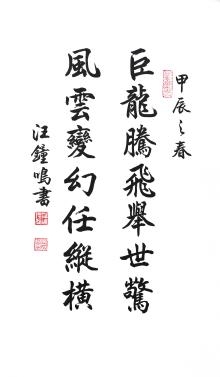 甲辰之春
巨龍騰飛舉世驚
風雲變幻任縱橫
汪鐘鳴書